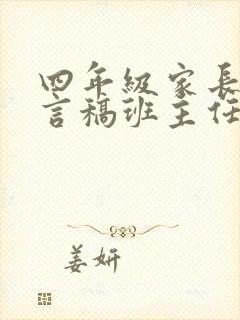 四年级家长
言稿班主任
姜妍